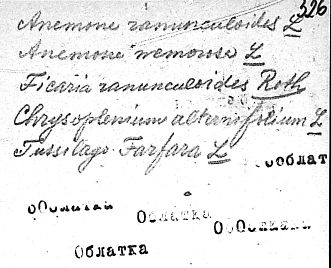 326
Anemone ranunculoides L
Anemone nemorosa L
Ficaria ranunculoides Roth
Chrysoplenium alternifolium L
Tussilago Farfara L
Облатка
Облатка